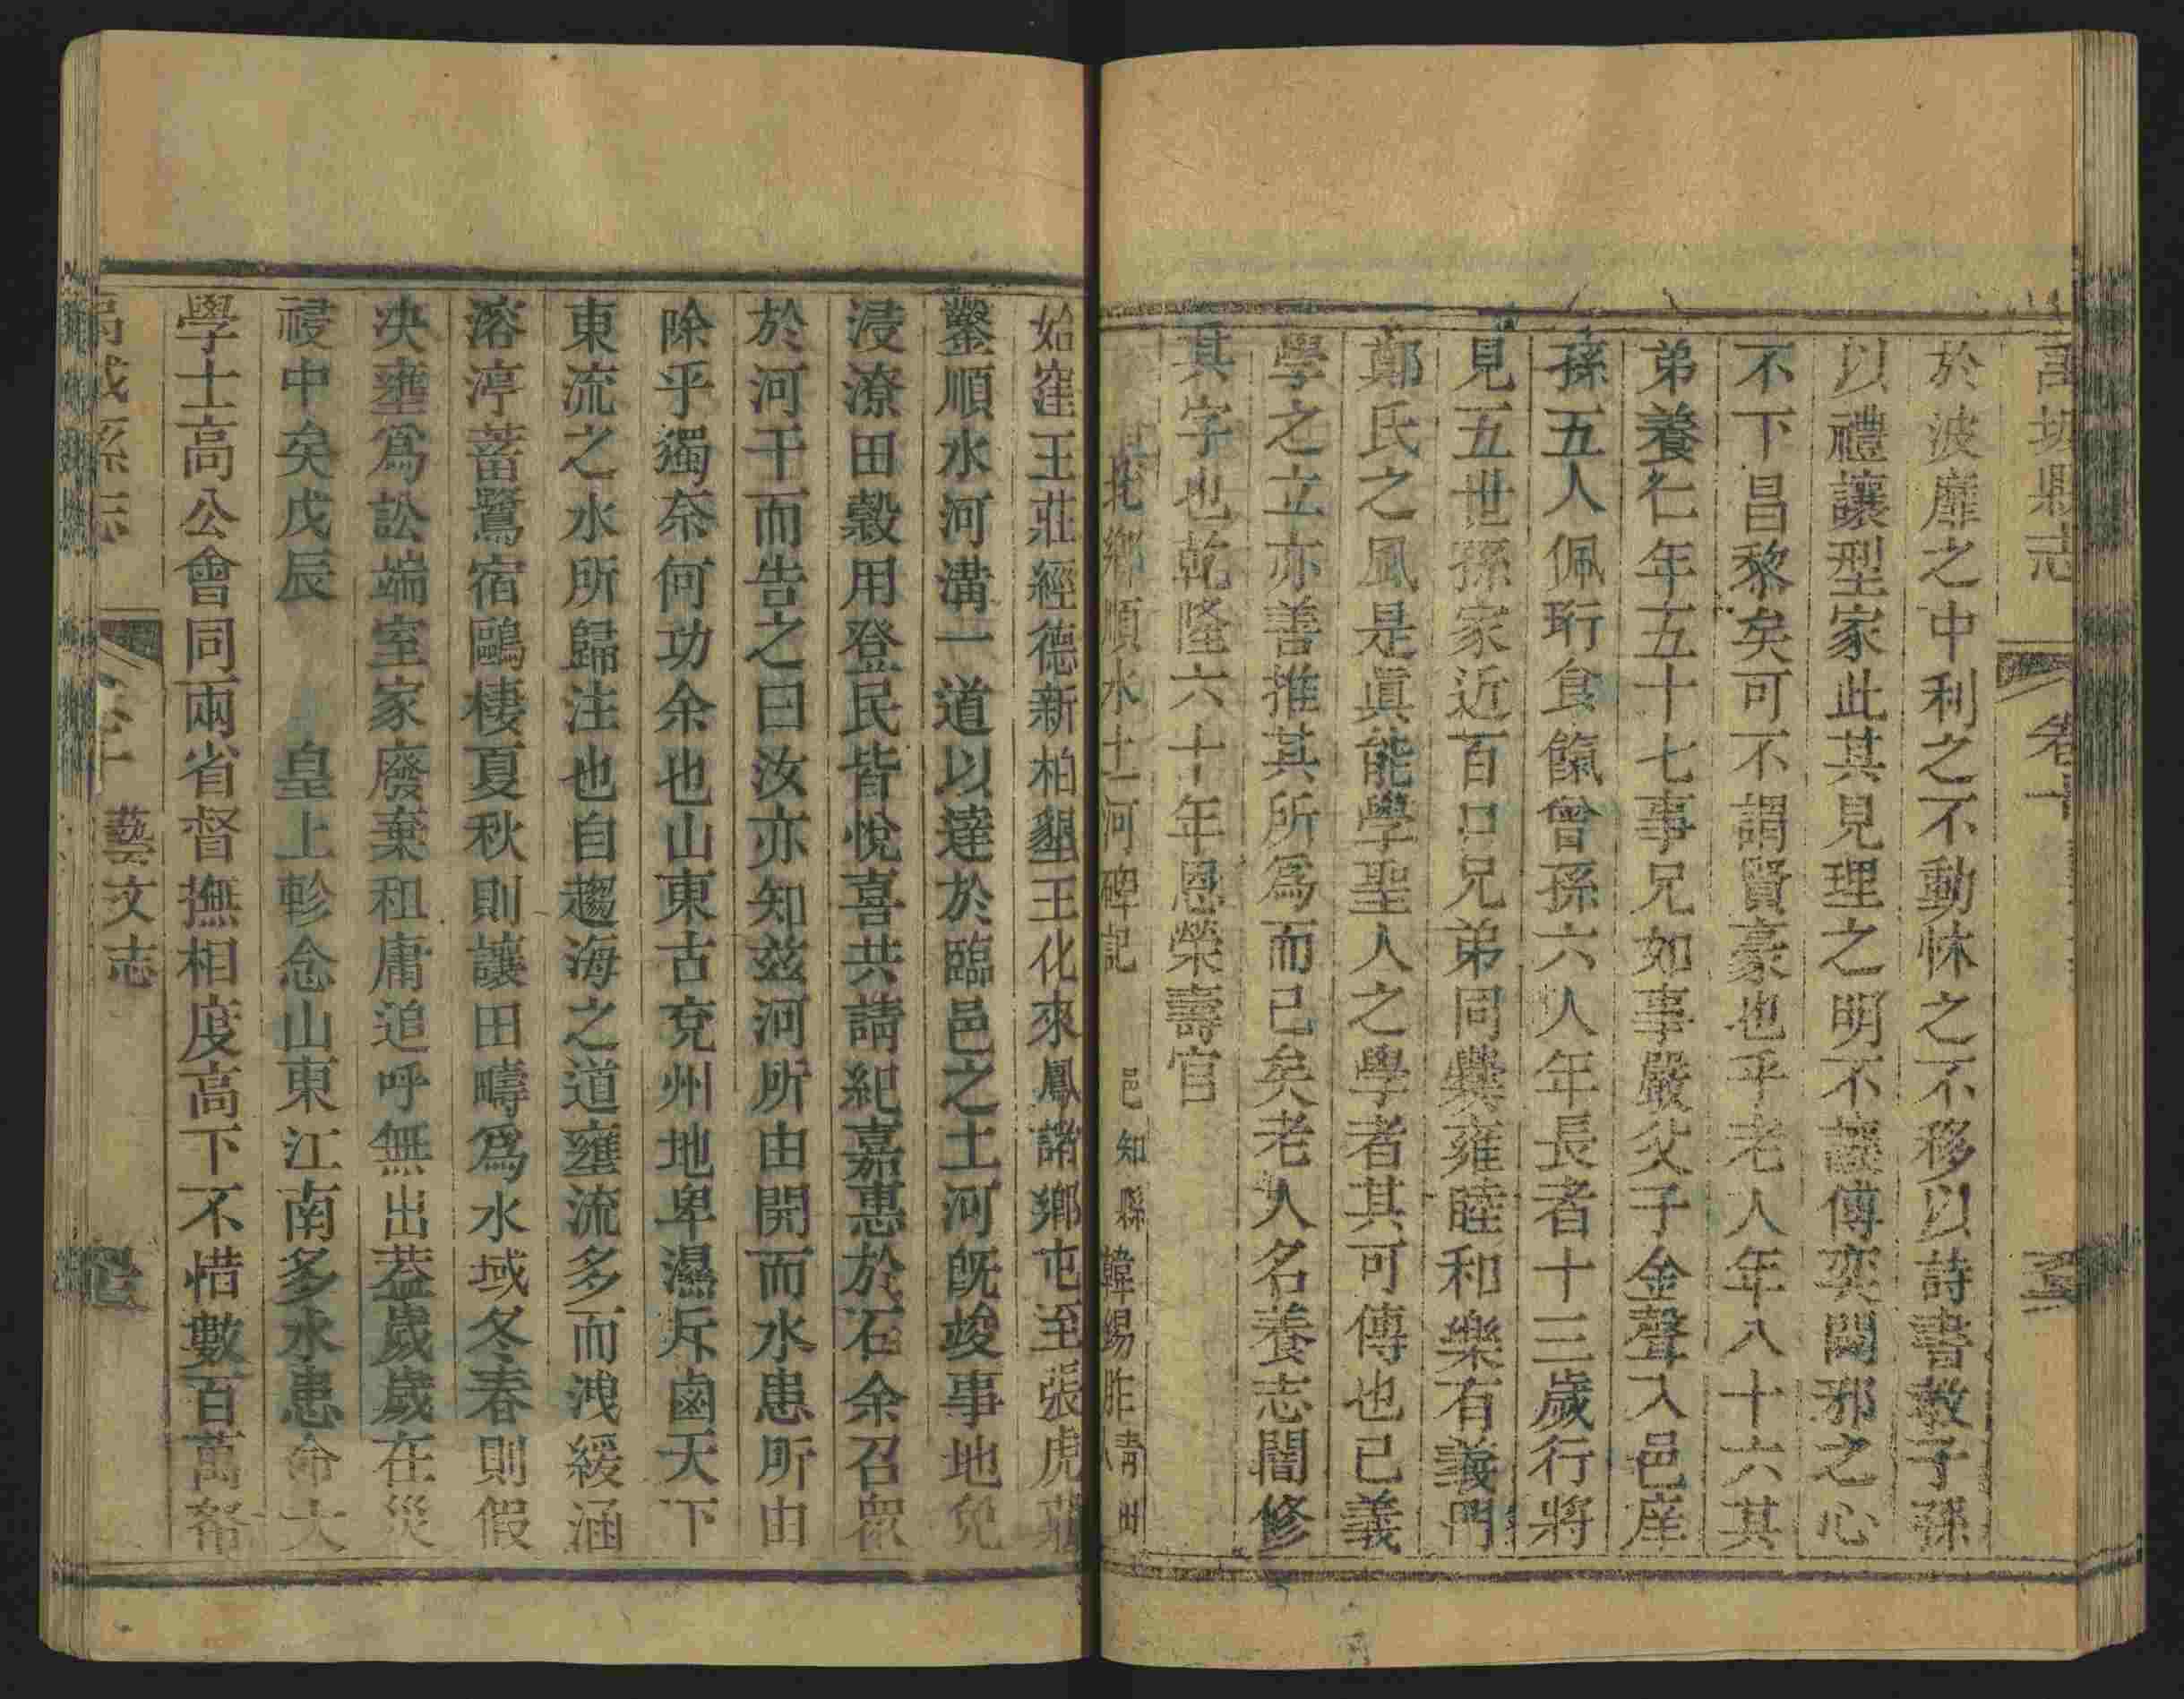 禹城縣志
卷十
於波靡之中利之不動怵之不移以詩書教子孫
以禮讓型家此其見理之明不讓傅奕闢邪之心
不下昌黎矣可不謂賢豪也乎老人年八十六其
弟養仁年五十七事兄如事嚴父子金聲入邑庠
孫五人佩珩食餼曾孫六人年長者十三歲行將
見五世孫家近百口兄弟同爨雍睦和樂有義門
鄭氏之風是眞能學聖人之學者其可傳也已義
學之立亦善推其所爲而已矣老人名養志閭修
其字也乾隆六十年恩榮壽官
北鄉順水土河碑記 邑知縣韓錫胙青田
始窪王莊經德新柏墾王化來鳳諸鄉屯至張虎莊
鑿順水河溝一道以達於臨邑之土河旣竣事地免
浸潦田穀用登民皆悅喜共請紀嘉惠於石余召衆
於河干而告之曰汝亦知玆河所由開而水患所由
除乎獨奈何功余也山東古兗州地卑濕斥鹵天下
東流之水所歸注也自趨海之道壅流多而洩緩涵
溶渟蓄鷺宿鷗棲夏秋則讓田疇爲水域冬春則假
决壅爲訟端室家廢棄租庸追呼無出葢歲歲在災
祲中矣戊辰 皇上軫念山東江南多水患命大
學士高公會同兩省督撫相度高下不惜數百萬帑
禹城縣志
卷十 藝文志